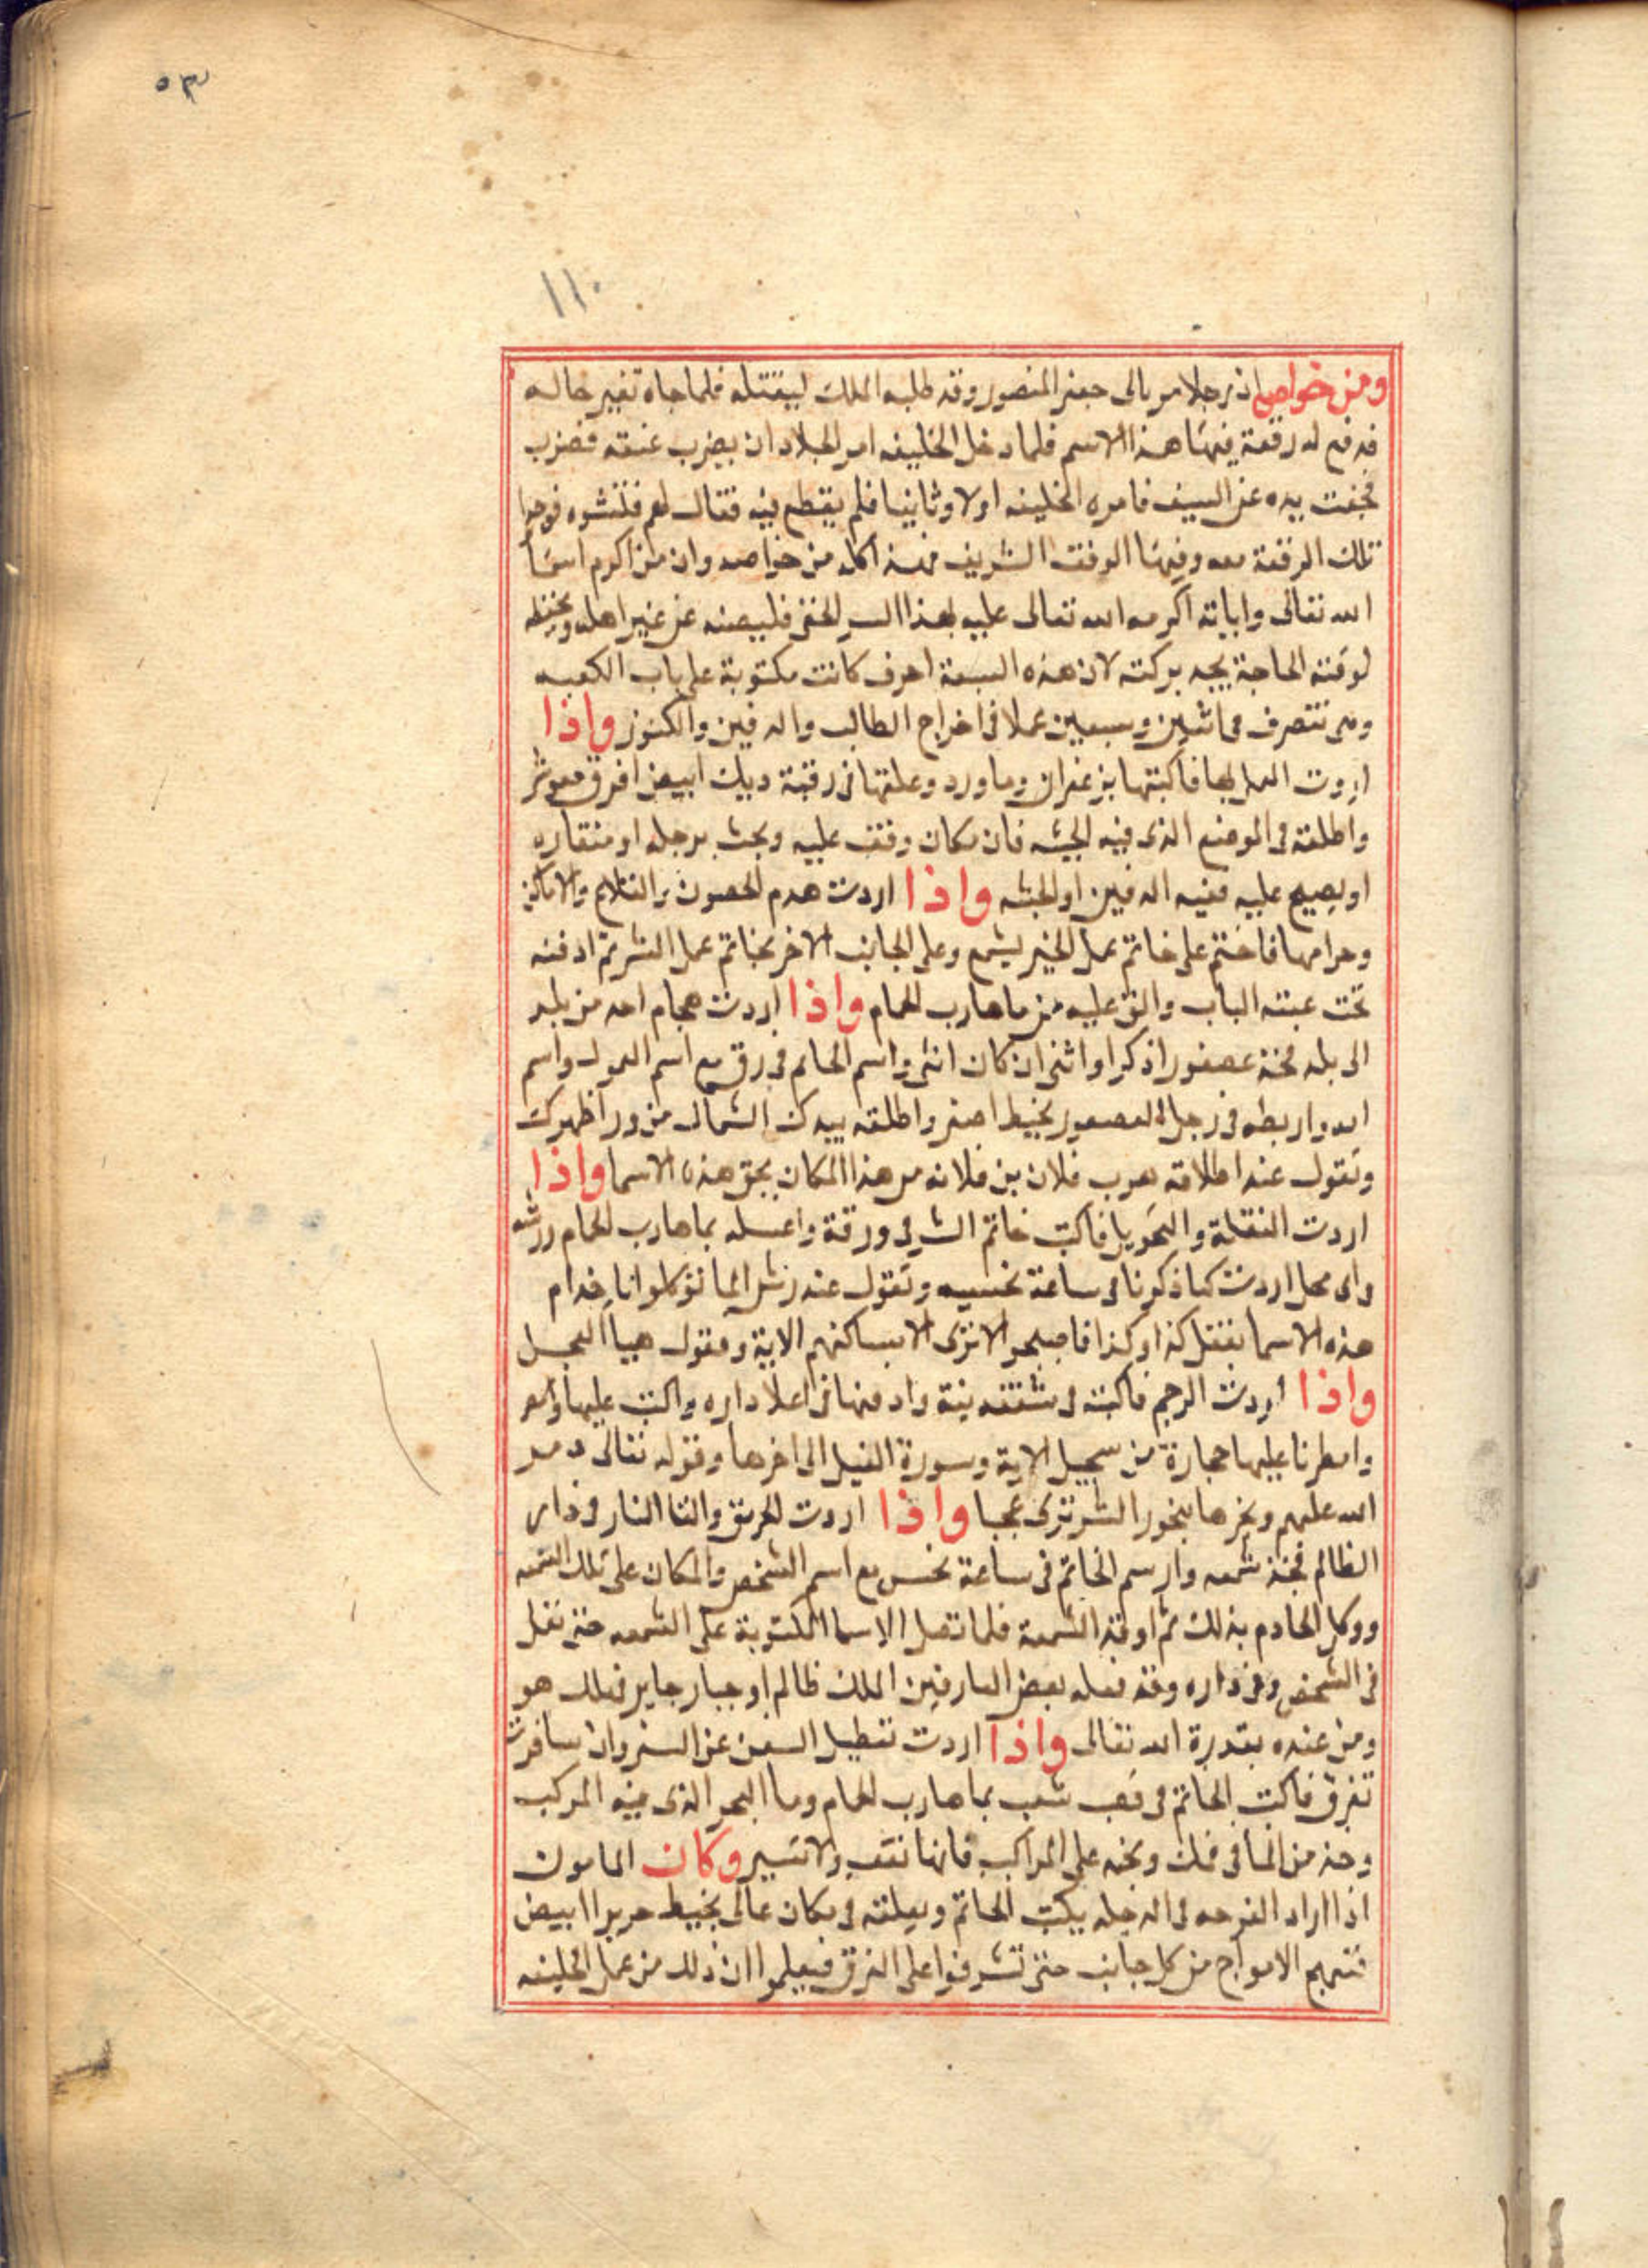 ٥٣
١١٠
ومن خواصه ان رجلا مر بابى جعفر المنصور وقد طلبه الملك ليقتله فلما جاه تغير حاله
فدفع له رقعة فيها هذا الاسم فلما دخل الخليفه امر الجلاد ان يضرب عنقه فضرب
فجفت يده عن السيف فامره الخليفه اولا وثانيا فلم يقطع فيه فقال لهم فتشوه فوجدوا
تلك الرقعة معه وفيها الوفق الشريف فهذا كله من خواصه وان من اكرم اسما
الله تعالى واياته اكرمه الله تعالى عليه بهذا السر الخفى فليصنه عن غير اهله ويحفظه
لوقت الحاجة يجد بركته لان هذه السبعة احرف كانت مكتوبة على باب الكعبه
وهى تتصرف فى اثنين وسبعين عملا فى اخراج الطالب والدفين والكنوز واذا
اردت العمل بها فاكتبها بزعفران وما ورد وعلقها فى رقبة ديك ابيض افرق
واطلقه فى الموضع الذى فيه الخبية فان مكان وقف عليه وبحث برجله او منقاره
او يصيح عليه ففيه الدفين او الخبية واذا اردت هدم الحصون والقلاع والاماكن
وحرامها فاختم على خاتم عمل الخير بشمع وعلى الجانب الاخر بخاتم عمل الشر ثم ادفنه
تحت عتبة الباب والق عليه من ما هارب الحمام واذا اردت هجاج احد من بلد
الى بلد فخذ عصفورا ذكرا او انثى ان كان انثى وارسم الخاتم فى رق مع اسم المعمول واسم
امه واربطه فى رجل العصفور بخيط اصفر واطلقه بيدك الشمال من ورا ظهرك
وتقول عند اطلاقه هرب فلان بن فلانه من هذا المكان بحق هذه الاسما واذا
اردت النقلة والتحويل فاكتب خاتم الشر فى ورقة واغسله بما هارب الحمام ورشه
فى اى محل اردت كما ذكرنا فى ساعة نحسه وتقول عند رش الما توكلوا يا خدام
هذه الاسما بنقل كذا وكذا فاصبحوا لا ترى الا مساكنهم الاية وتقول هيا العجل
واذا اردت الرجم فاكتبه فى شقفه نية وادفنها فى اعلا داره واكتب عليها
وامطرنا عليها حجارة من سجيل الاية وسورة الفيل الى اخرها وقوله تعالى دمر
الله عليهم وبخرها ببخور الشر ترى عجبا واذا اردت الحريق والقا النار فى دار
الظالم فخذ شمعه وارسم الخاتم فى ساعة نحس مع اسم الشخص والمكان على تلك الشمعه
ووكل الخادم بذلك ثم اوقد الشمعة فلما تصل الاسما المكتوبة على الشمعه حتى تفعل
فى الشخص وفى داره وقد فعله بعض العارفين الملك ظالم او جبار جاير فهلك هو
ومن عنده بقدرة الله تعالى واذا اردت تعطيل السفن عن السفر وان سافرت
تغرق فاكتب الخاتم فى قعب شعب بما هارب الحمام وما البحر الذى فيه المركب
وخذ من الما فى فمك وبخه على المراكب فانها تقف ولا تسير وكان المامون
اذا اراد الفرجه فى الدجله يكتب الخاتم ويعلقه فى مكان عالى بخيط حريرا ابيض
فتهيج الامواج من كل جانب حتى تشرفوا على الغرق فيعلموا ان ذلك من عمل الخليفه